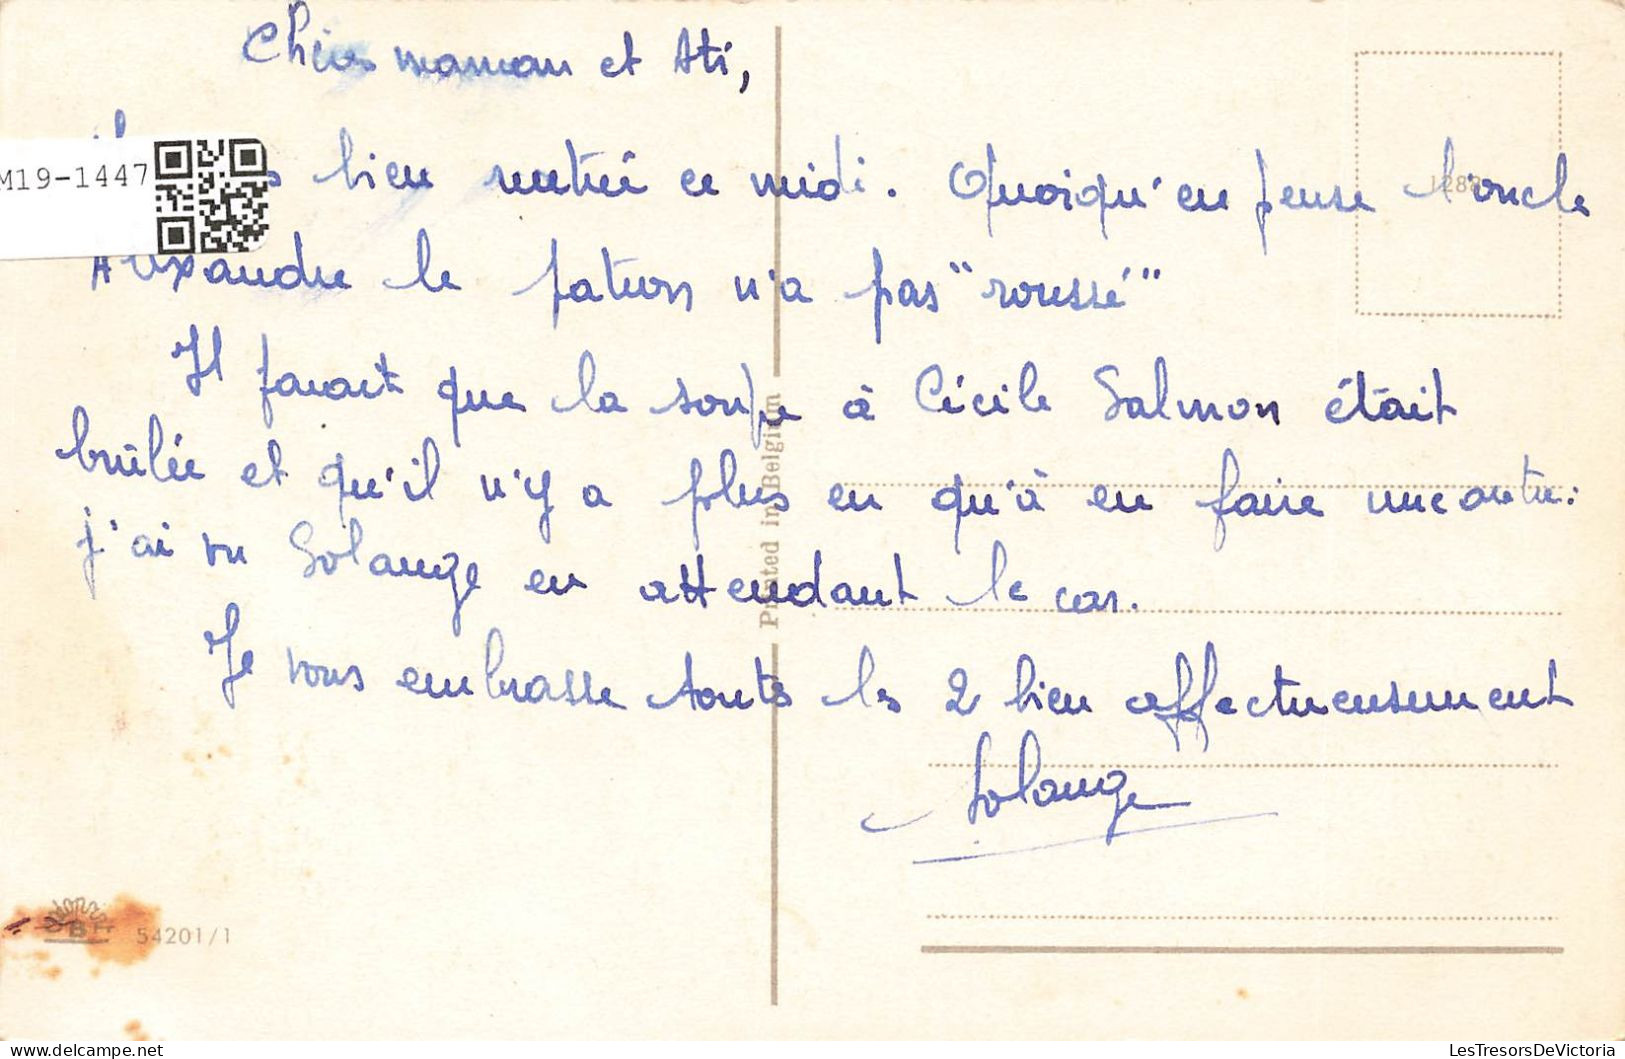 Chères maman et Ati,
M19-1447
bien rentré ce midi. Quoiqu'en pense l'oncle
1288
Alexandre le patron n'a pas "roussé"
Il parait que la soupe à Cécile Salmon était
brûlée et qu'il n'y a plus en qu'à en faire une autre.
j'ai vu Solange en attendant le car.
Je vous embrasse toutes les 2 bien affectueusement
Solange
Printed in Belgium
B
54201/1
LesTresorsDeVictoria